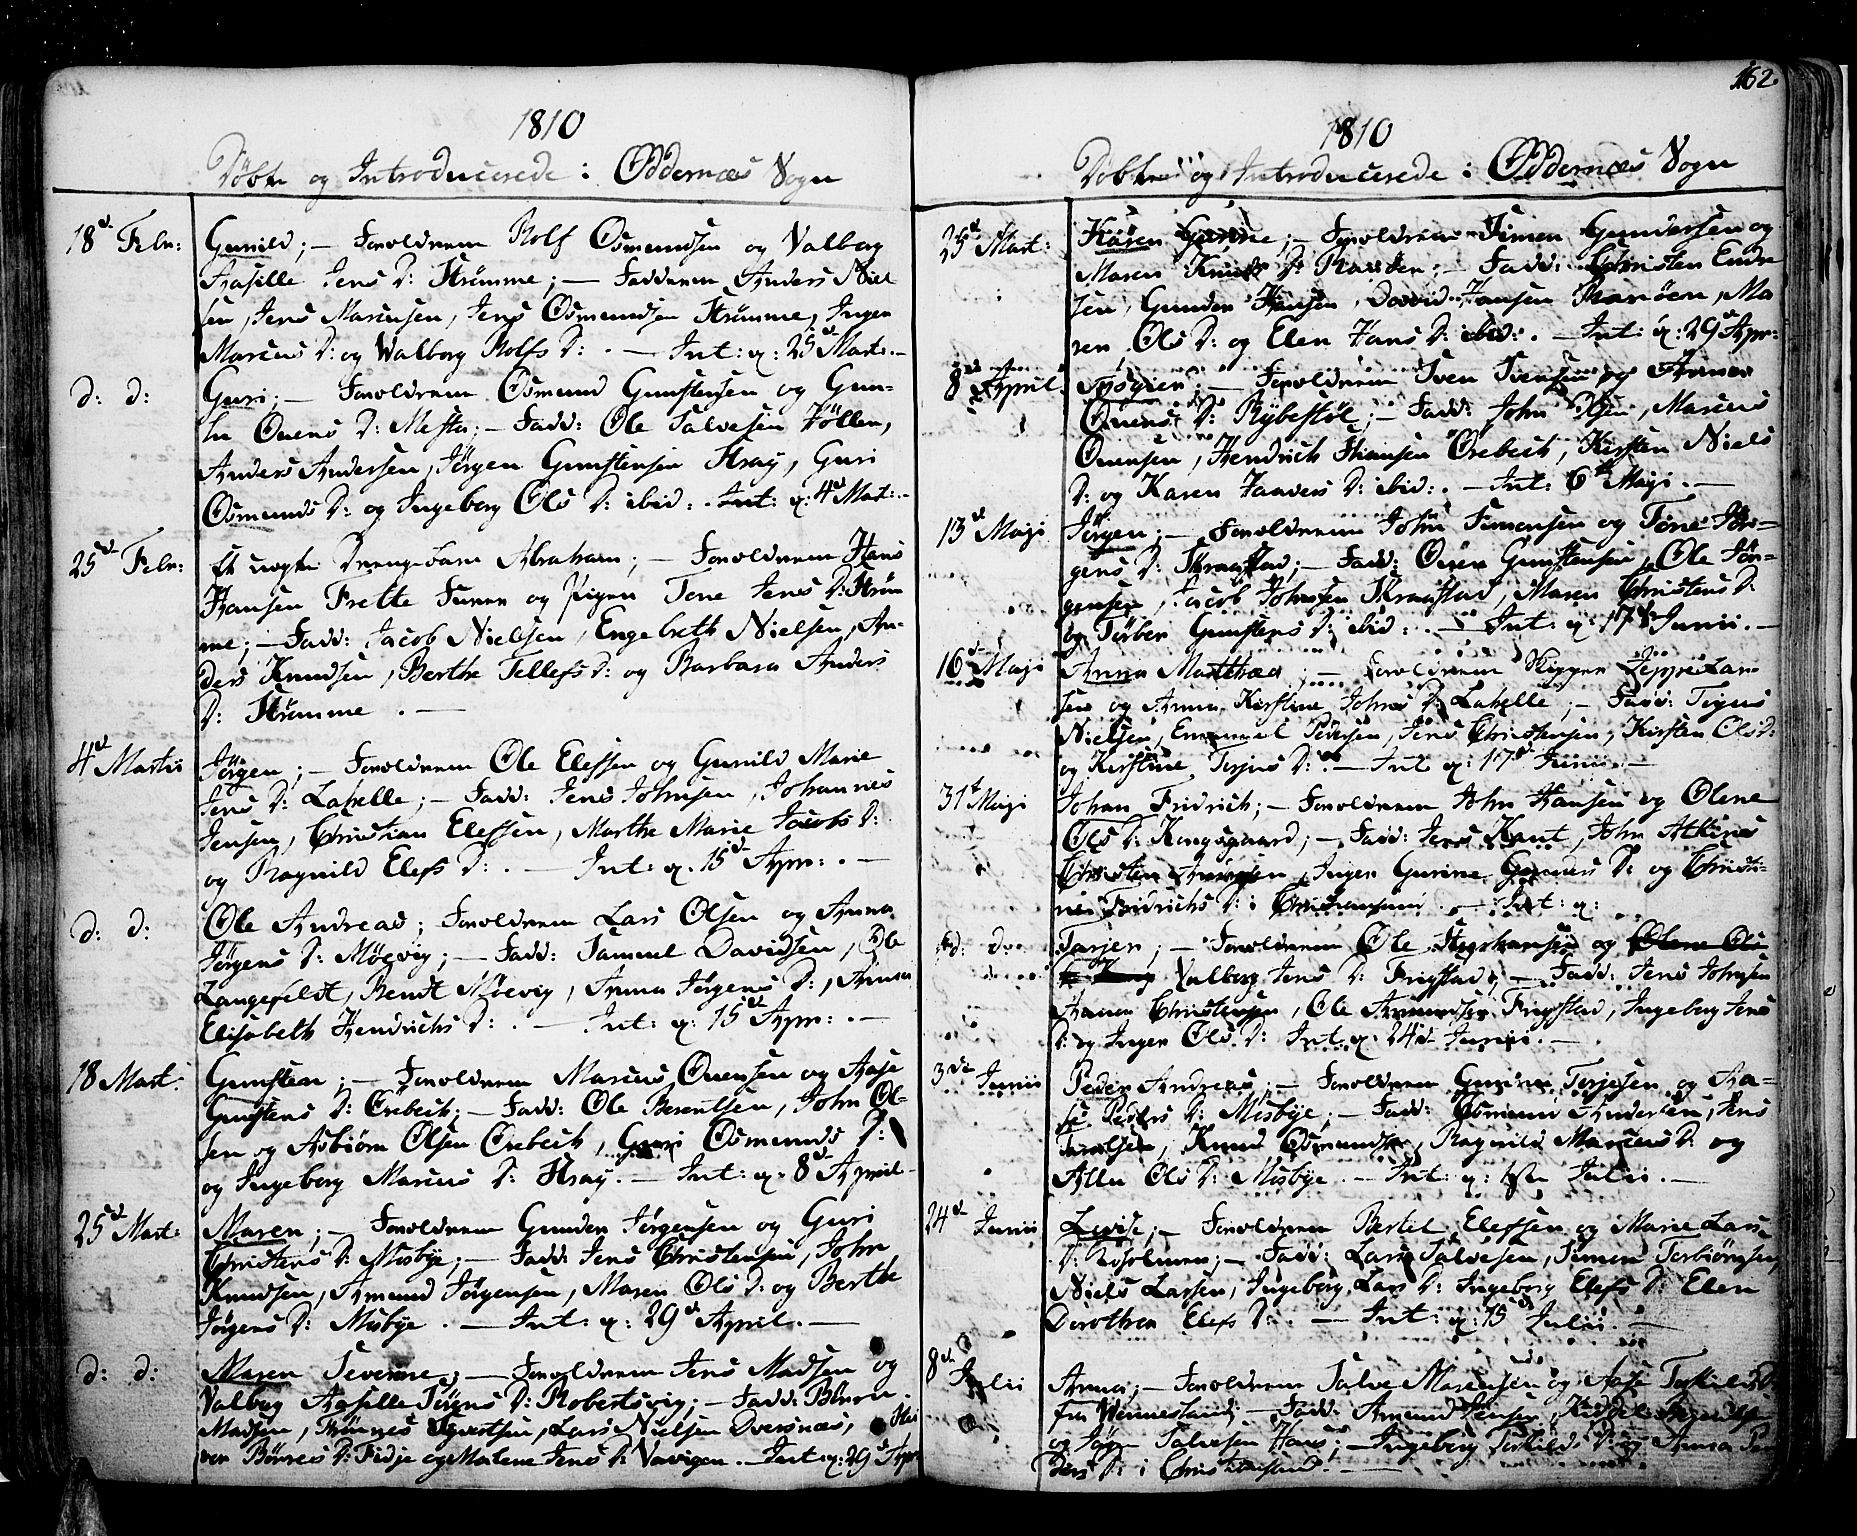 1810
Döbte og Introducerede i Oddernæs Sogn
18d Febr: Gunild; — Forældrene Rolf Osmundsen og Valborg
Aasille Jens D: Strømme; — Fadderne Anders Niel-
sen, Jens Marcusen, Jens Osmundsen Strømme, Inger
Marcus D: og Walborg Rolfs D: . — Int: q: 25d Mart: —
d: d: Guri; — Forældrene Osmund Gunstensen og Gun-
Ouens D: Mesta; — Fadd: Ole Salvesen Vollen,
Anders Andersen, Jørgen Gunstensen Stray, Guri
Osmunds D: og Ingeborg Ols D: ibid: . Int: q: 4d Mart: —
25d Febr: Et uægte Drengebarn Abraham; — Forældrene Hans
Hansen Frette og Pigen Tone Jens D: Strøm
me; — Fadd: Jacob Nielsen, Engebreth Nielsen, An-
ders Knudsen, Berthe Tellefs D: og Barbara Anders
D: Strømme . —
4d Martii Jörgen; — Forældrene Ole Elefsen og Gunild Marie
Jens D: Lahelle; — Fadd: Jens Johnsen, Johannes
Jensen, Christian Elefsen, Marthe Marie Jacobs D:
og Ragnild Elefs D: . — Int: q: 15d Apr: . —
d: d: Ole Andreas; Forældrene Lars Olsen og Anna
Jörgens D: Möevig; — Fadd: Samuel Davidsen, Ole
Langefeldt, Bendt Möevig, Anna Jörgens D:, Anna
Elisabeth Hendrichs D: . — Int: q: 15d Apr: . —
18 Mart: Gunsten; — Forældrene Marcus Ouensen og Aase
Gunstens D: Örebech; — Fadd: Ole Berentsen, John Ol-
sen og Asbiörn Olsen Örebech, Guri Osmunds D:
og Ingeborg Marcus D: Stray. — Int: q: 8d April
25d Mart: Maren; — Forældrene Gunder Jörgensen og Guri
Christens D: Misbye; — Fadd: Jens Christensen, John
Knudsen, Amund Jörgensen, Maren Ols D: og Berthe
Jörgens D: Misbye . — Int: q: 29d April. —
d: d: Maren Severine; — Forældrene Jens Madsen og
Valborg Aasille Jörgens D: Robertsvig; — Fadd: Börre
Madsen, Tönnes Sywertsen, Lars Nielsen Dversnæs,
Börres D: Fidje og Malene Jens D: Vovigen. — Int: q: 29d Apr:
162.
1810
Döbte og Introducerede i Oddernæs Sogn
25d Mart: Karen Gurine; — Forældrene Simen Gundersen og
Maren Knuds D: — Fadd: Christen Endre
sen, Gunder Hansen, David Hansen Ma
ren Ols D: og Elen Hans D: ibid: . — Int: q: 29d Apr:
8d April — Forældrene Sven Svensen og Anne
Ouens D: Rybestöl; — Fadd: John Olsen, Marcus
Ouensen, Hendrich Hansen Örebech, Kirsten Niels
D: og Karen D: ibid: . — Int: 6te Maji . —
13d Maji Jörgen; — Forældrene John Simensen og Tone Jör-
gens D: Kragstad; — Fadd: Ouen Gunstensen, Ole Jör-
gensen, Jacob Johnsen Kragstad, Maren Christens D:
og Torber Gunstens D: ibid: . — Int: q: 17d Junii. —
16d Maji Anna Matthæa; — Forældrene Skipper Jeppe Lar-
sen og Anna Kirstine Johns D: Lahelle; — Fadd:
Nielsen, Emanuel Pedersen, Jens Christensen, Kirsten Ols D:
og Kirstine Terjes D: — Int q: 17d Junii. —
31te Maji Johan Fridrich; — Forældrene John Hansen og Olene
Ols D: Kongsgaard; — Fadd: Jens Kant, John Atkins
Christen Inger Gurine Gunders D: og Christi-
ne Fridrichs D: i Christiansand . — Int: q:
d: d: Tarjer; — Forældrene Ole og Olene Ols
Valborg Jens D: Frigstad; — Fadd: Jens Johnsen
Aanen Christensen, Ole Frigstad, Ingeborg Jens
D: og Inger Ols D: Int. q: 24d Junii. —
3die Junii Peder Andreas; — Forældrene Terjesen og Aa-
se Peders D: Misbye; — Fadd: Osmund Andersen, Jens
Knud Osmundsen, Ragnild Marcus D: og
Ols D: Misbye . — Int: q: 1ste Julii . —
24d Junii Levise; — Forældrene Bertel Elefsen og Marie Lars
D: — Fadd: Lars Salvesen, Simen Torbiörnsen
Niels Larsen, Ingeborg Lars D: Ingeborg Elefs D: Elen
Dorothea Elefs D: . — Int: q: 15d Julii . —
8d Julii Anna; — Forældrene Salve Marcusen og Aase D:
fra Wennesland; — Fadd: Amund Jensen,
og Salvesen — Ingeborg D: og Anna Pe-
ders D: i Christiansand . —